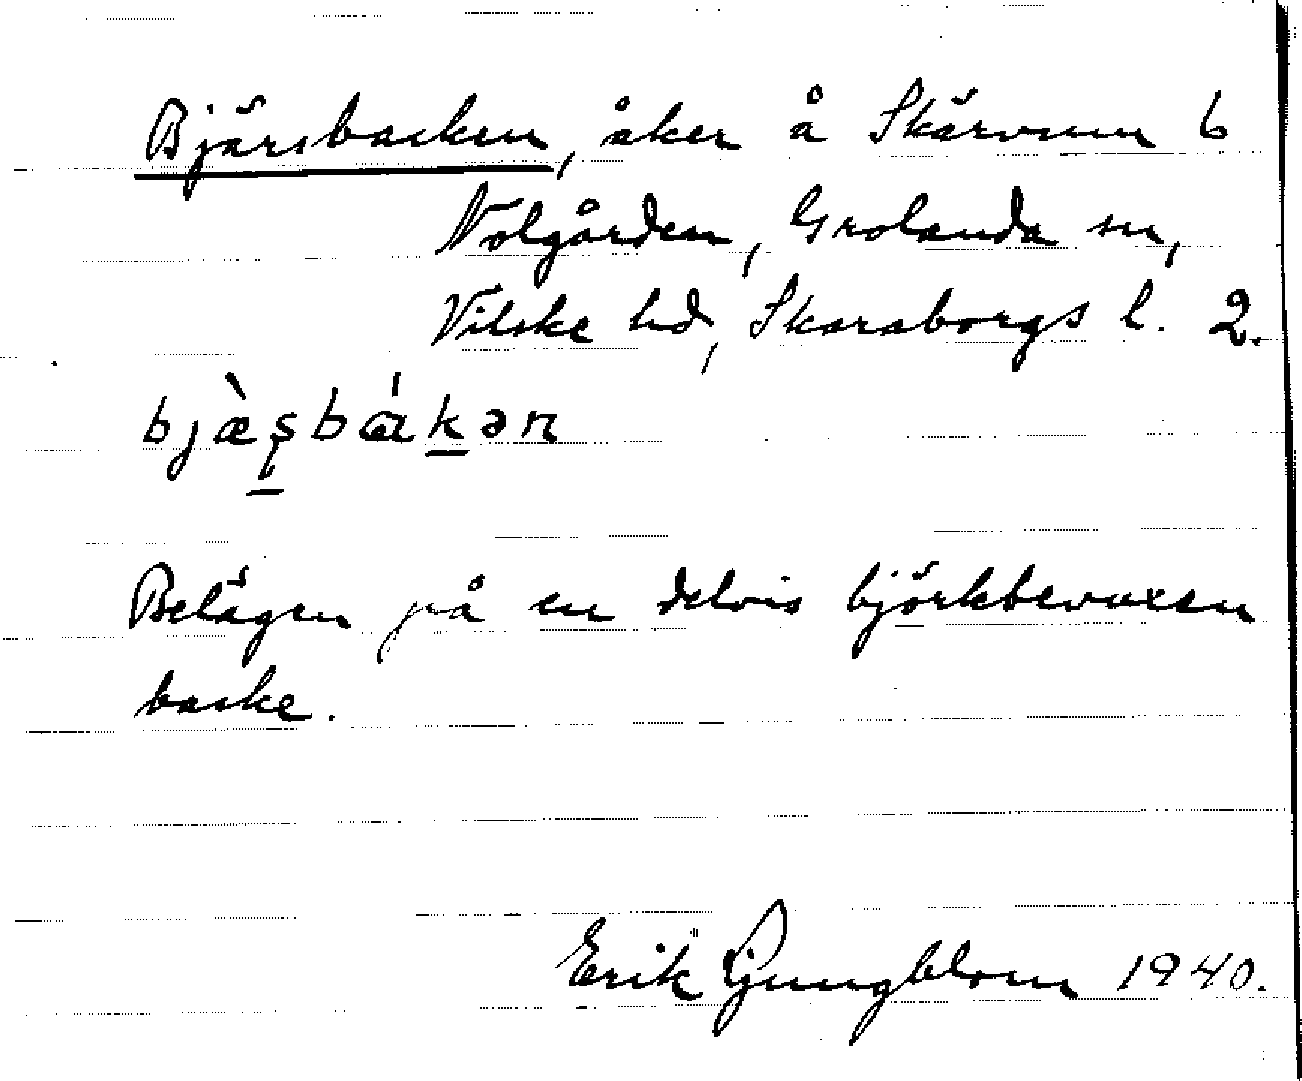 Bjärsbacken, åker å Skärvum 6
Nolgården, Grolanda sn,
Vilske hd, Skaraborgs l. 2.
bjæ̀ʂbákən
Belägen på en delvis björkbevuxen
backe.
Erik Ljungblom 1940.